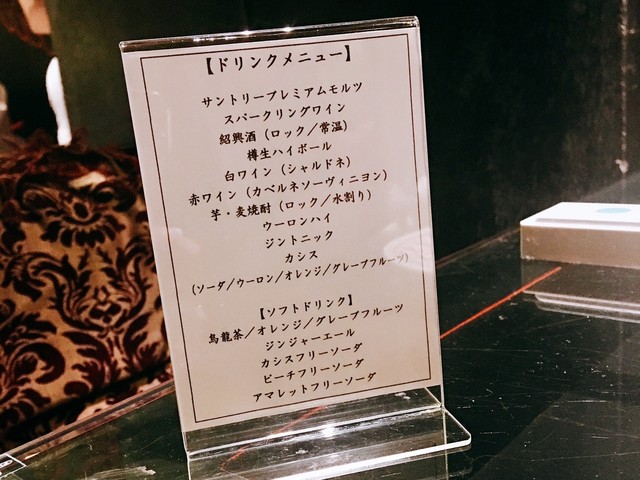 【ドリンクメニュー】
サントリープレミアムモルツ
スパークリングワイン
紹興酒（ロック／常温）
樽生ハイボール
白ワイン（シャルドネ）
赤ワイン（カベルネソーヴィニヨン）
芋・麦焼酎（ロック／水割り）
ウーロンハイ
ジントニック
カシス
（ソーダ／ウーロン／オレンジ／グレープフルーツ）
【ソフトドリンク】
烏龍茶／オレンジ／グレープフルーツ
ジンジャーエール
カシスフリーソーダ
ピーチフリーソーダ
アマレットフリーソーダ